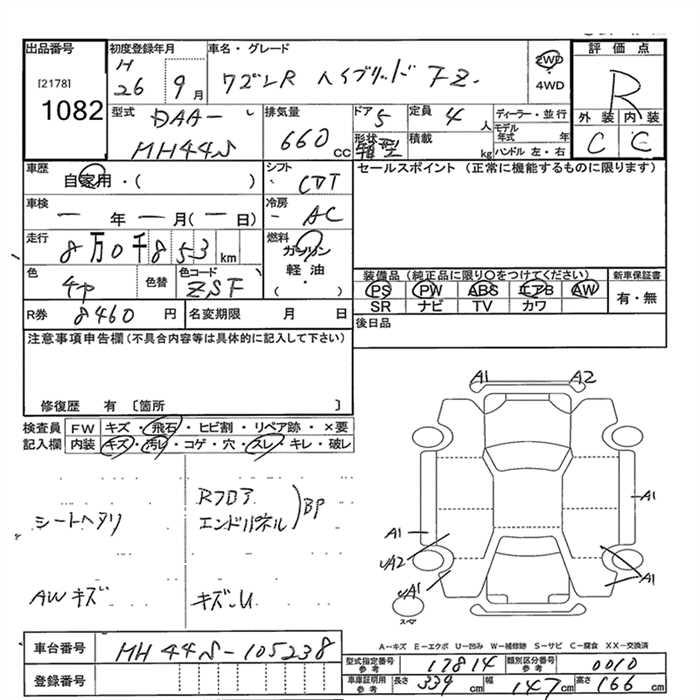 出品番号 初度登録年月 車名・グレード 評価点
[2178] H 26 9月 ワゴンR ハイブリッド FZ 2WD 4WD R
1082
型式 DAA- 排気量 ドア 5 定員 4人 ディーラー・並行 外装 内装
MH44S 660cc 形状 箱型 積載 kg モデル年式 年 C C
ハンドル 左・右
車歴 自家用・( ) シフト CVT セールスポイント (正常に機能するものに限ります)
車検 ー年ー月(ー日) 冷房 AC
走行 8万0千853km 燃料 ガソリン
軽油・( )
色 色替 色コード ZSF 装備品(純正品に限り○をつけてください) 新車保証書
PS PW ABS エアB AW 有・無
SR ナビ TV カワ
R券 8460円 名変期限 月 日 後日品
注意事項申告欄(不具合内容等は具体的に記入して下さい)
修復歴 有〔箇所 〕
検査員 FW キズ・飛石・ヒビ割・リペア跡・×要
記入欄 内装 キズ・汚レ・コゲ・穴・スレ・キレ・破レ
A1 A2
Rフロア
シートヘタリ エンドパネル BP
A1
A1
A2
A1
A1
AWキズ キズ・U
スペア
A-キズ E-エクボ U-凹み W-補修跡 S-サビ C-腐食 XX-交換済
車台番号 MH44S-105238
型式指定番号 参考 17814 類別区分番号 参考 0010
登録番号 車庫証明用 参考 長さ 339cm 幅 147cm 高さ 166cm